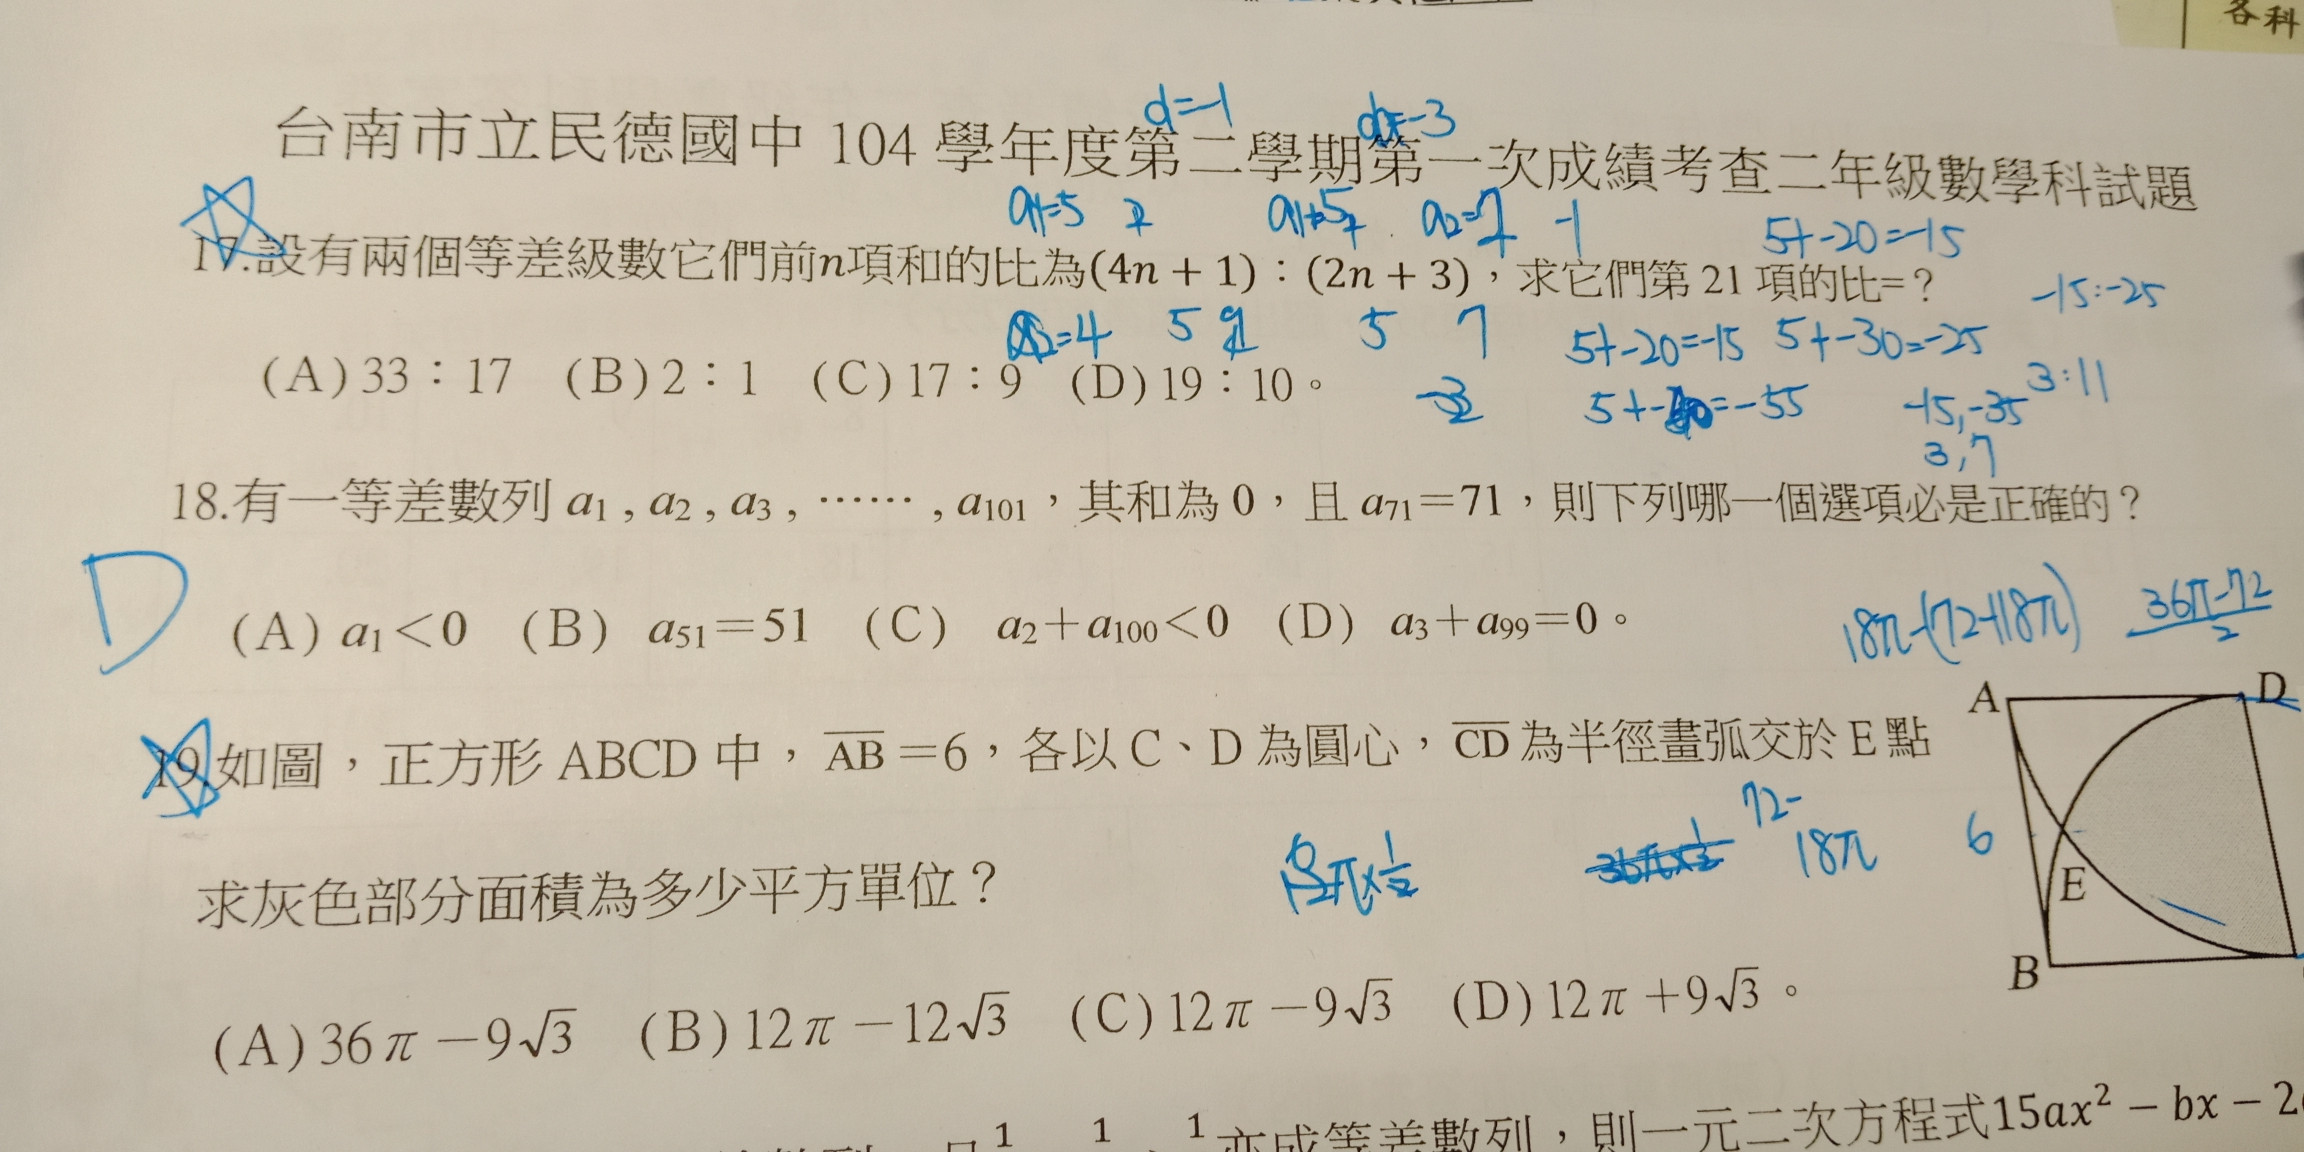 各科
d=-1
台南市立民德國中 104 學年度第二學期第一次成績考查二年級數學科試題
5+-20=-15
17.設有兩個等差級數它們前n項和的比為(4n + 1)：(2n + 3)，求它們第 21 項的比=？
-15:-25
5 9 5 7 5+-20=-15 5+-30=-25
(A)33：17 (B)2：1 (C)17：9 (D)19：10。
3:11
-15,-35
3,7
18.有一等差數列 a₁ , a₂ , a₃ , …… , a₁₀₁，其和為 0，且 a₇₁＝71，則下列哪一個選項必是正確的？
D
(A) a₁＜0 (B) a₅₁＝51 (C) a₂＋a₁₀₀＜0 (D) a₃＋a₉₉＝0。
18π-(72-18π) 36π-72/2
A D
19.如圖，正方形 ABCD 中，A̅B̅＝6，各以 C、D 為圓心，C̅D̅ 為半徑畫弧交於 E 點
72-
18π
6
E
求灰色部分面積為多少平方單位？
B
(A)36π－9√3 (B)12π－12√3 (C)12π－9√3 (D)12π＋9√3。
亦成等差數列，則一元二次方程式15ax² − bx − 2